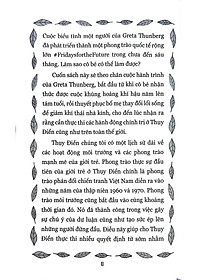 Cuộc biểu tình một người của Greta Thunberg
đã phát triển thành một phong trào quốc tế rộng
lớn #FridaysfortheFuture trong chưa đến sáu
tháng. Làm sao cô bé có thể làm được?
Cuốn sách này sẽ theo chân cuộc hành trình
của Greta Thunberg, bắt đầu từ khi cô bé nhận
thức được cuộc khủng hoảng khí hậu năm lên
tám tuổi, rồi thuyết phục bố mẹ thay đổi lối sống
để giảm khí thải nhà kính, cho đến lúc nhận ra
rằng cần thực thi các hành động chính trị ở Thụy
Điển cũng như trên toàn thế giới.
Thụy Điển chúng tôi có một lịch sử dài về
các hoạt động môi trường và các phong trào
mạnh mẽ của giới trẻ. Phong trào thực sự đầu
tiên của giới trẻ ở Thụy Điển là phong trào
phản đối chiến tranh Việt Nam diễn ra vào
những năm của thập niên 1960 và 1970. Phong
trào môi trường cũng bắt đầu vào cùng khoảng
thời gian đó. Nó đã thành công trong việc gây
sự chú ý của dư luận cũng như tạo sức ép lên
những người đứng đầu. Điều này giúp cho Thụy
Điển thực thi nhiều quyết định từ sớm nhằm
11